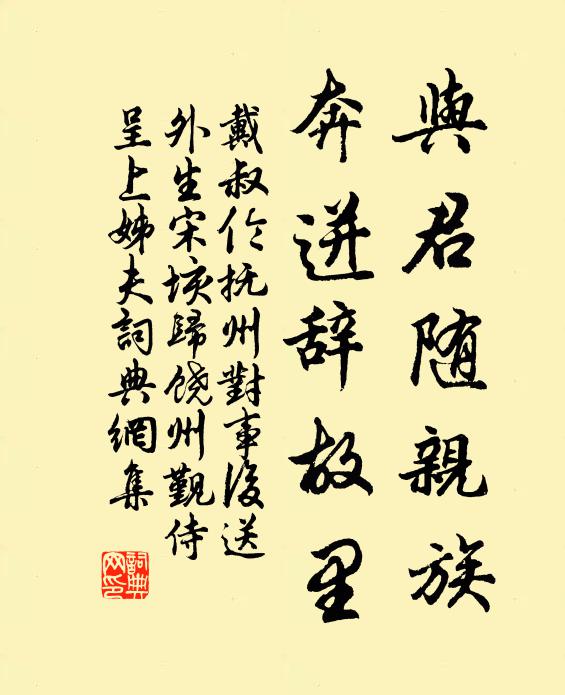 與君随親族
奔迸辞故里
戴叔伦抚州對事後送
外生宋垓歸饶州覲侍
呈上姊夫詞典網集
詞典网印